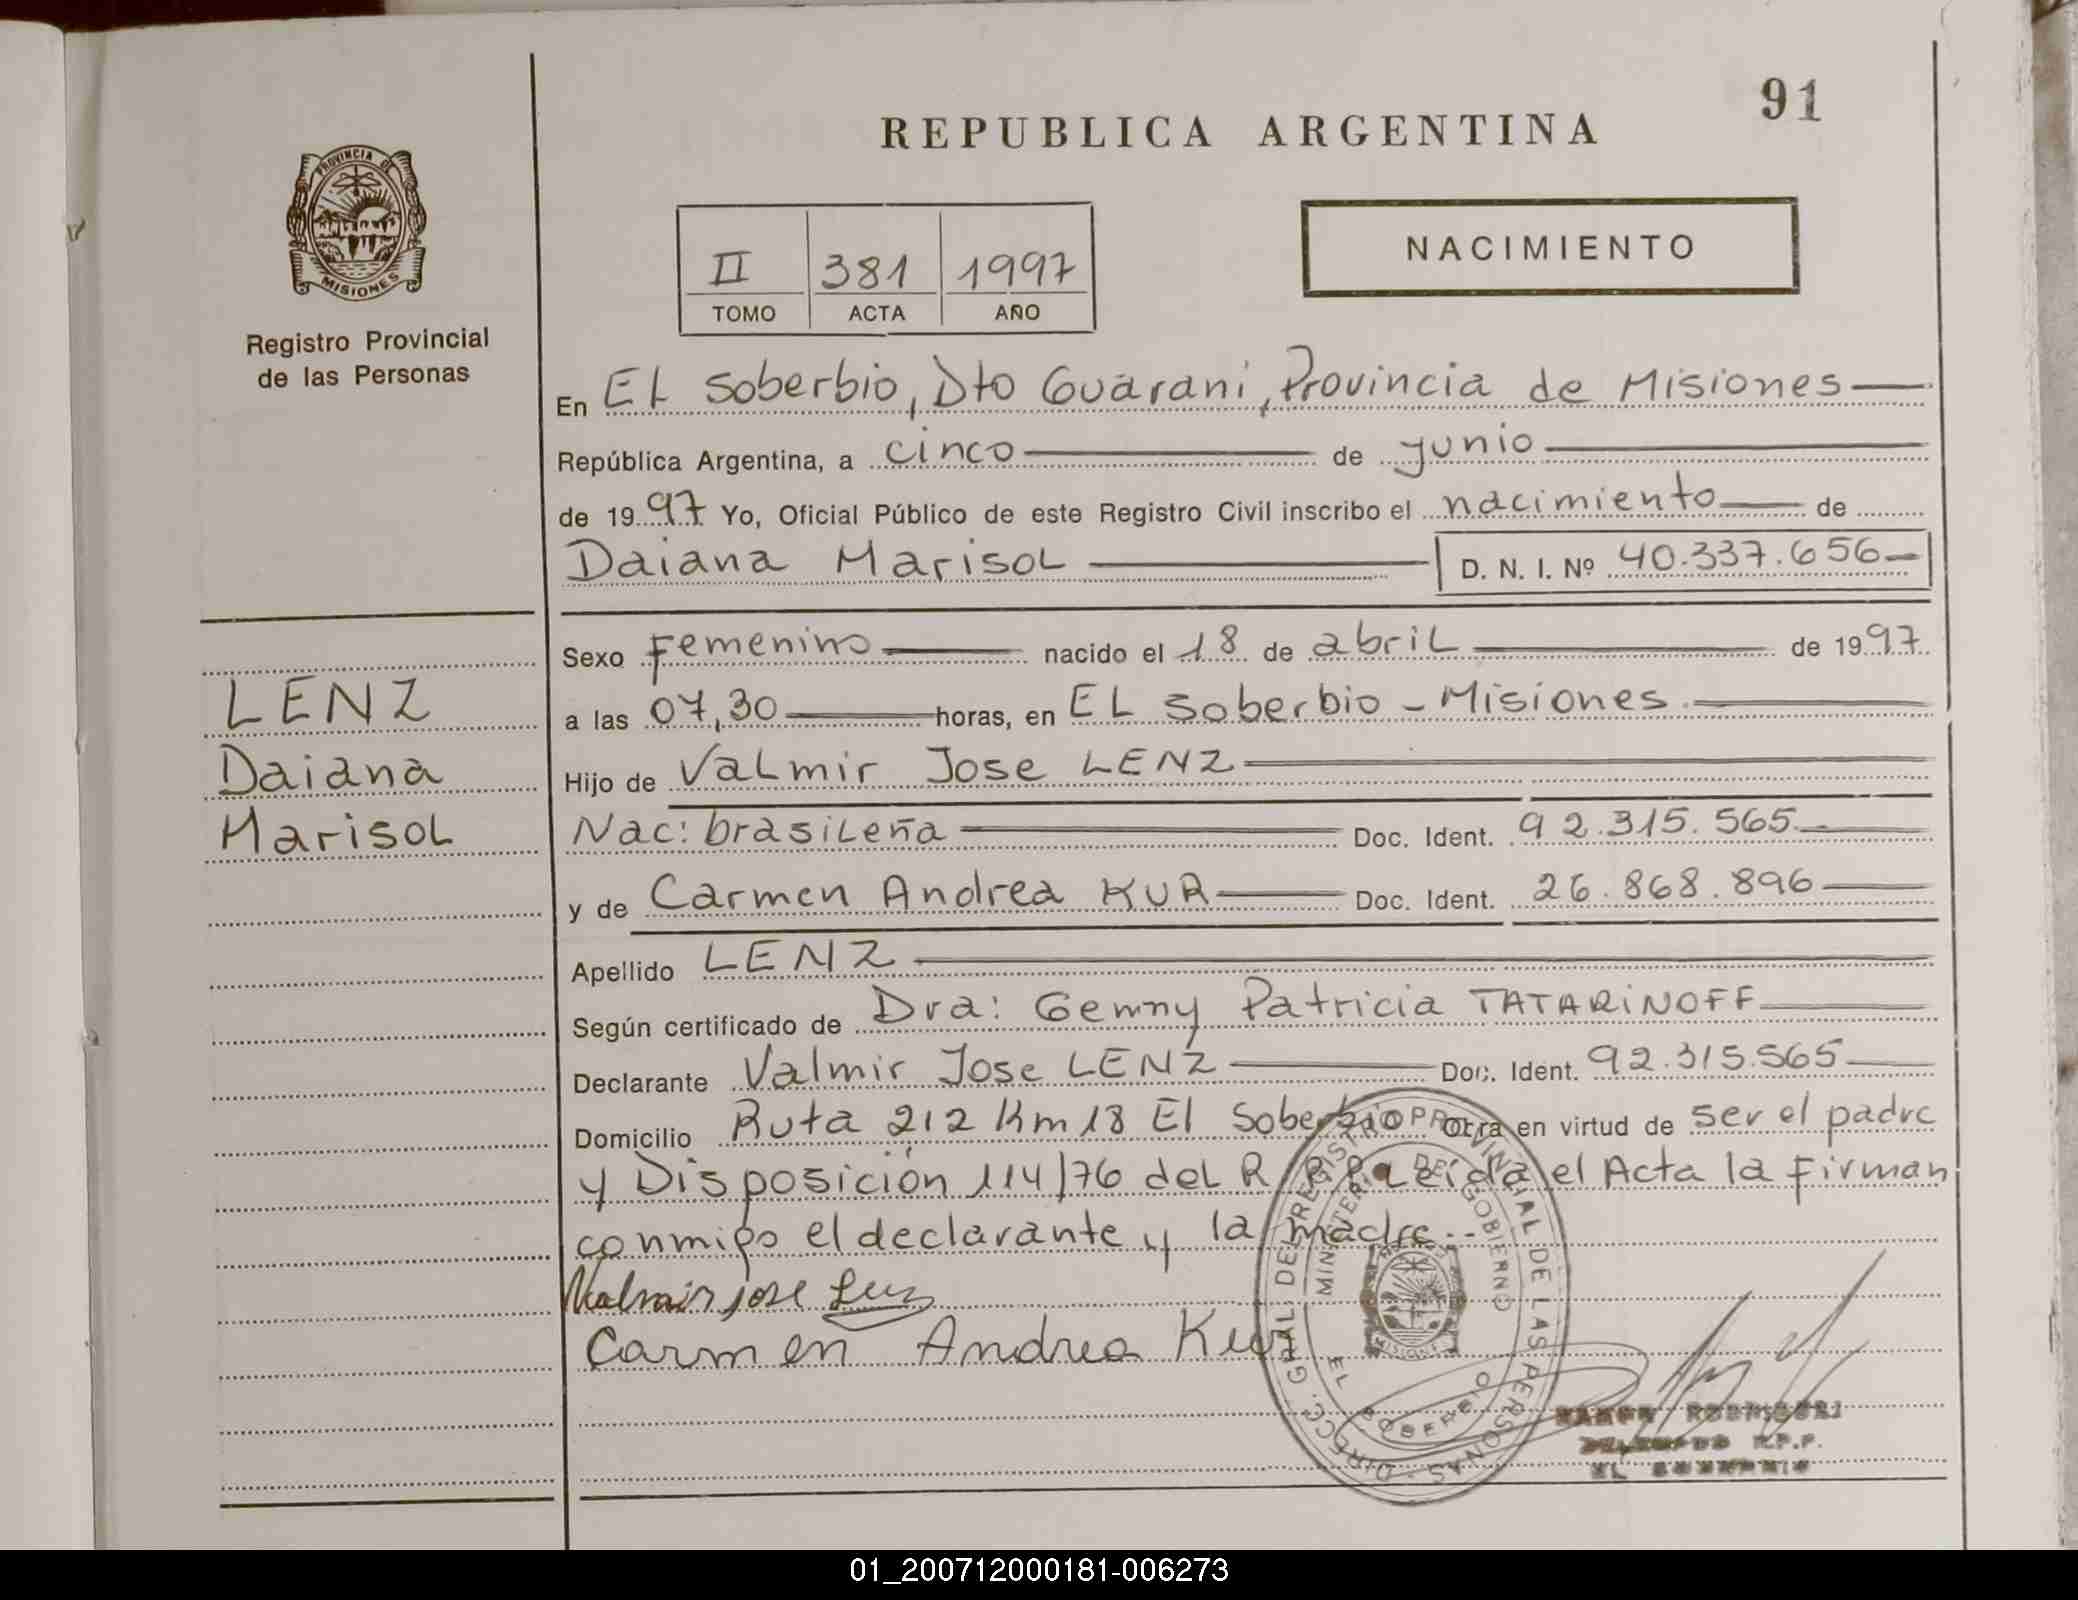 91
REPUBLICA ARGENTINA
PROVINCIA DE
MISIONES
Registro Provincial
de las Personas
II 381 1997
TOMO ACTA AÑO
NACIMIENTO
En EL Soberbio, Dto Guarani, Provincia de Misiones
República Argentina, a cinco de junio
de 1997 Yo, Oficial Público de este Registro Civil inscribo el nacimiento de
Daiana Marisol D. N. I. Nº 40.337.656
LENZ
Daiana
Marisol
Sexo Femenino nacido el 18 de abril de 1997
a las 07,30 horas, en EL Soberbio - Misiones
Hijo de Valmir Jose LENZ
Nac: brasileña Doc. Ident. 92.315.565
y de Carmen Andrea KUR Doc. Ident. 26.868.896
Apellido LENZ
Según certificado de Dra: Gemny Patricia TATARINOFF
Declarante Valmir Jose LENZ Doc. Ident. 92.315.565
Domicilio Ruta 212 Km 18 El Soberbio Obra en virtud de ser el padre
y Disposición 114/76 del R.P.P. Leída el Acta la firman
conmigo el declarante y la madre.-
Valmir jose Lenz
Carmen Andrea Kur
DIRECC. GRAL DE REGISTRO PROVINCIAL DE LAS PERSONAS
MINISTERIO DE GOBIERNO
EL SOBERBIO
MISIONES
R.P.P.
EL SOBERBIO
01_200712000181-006273